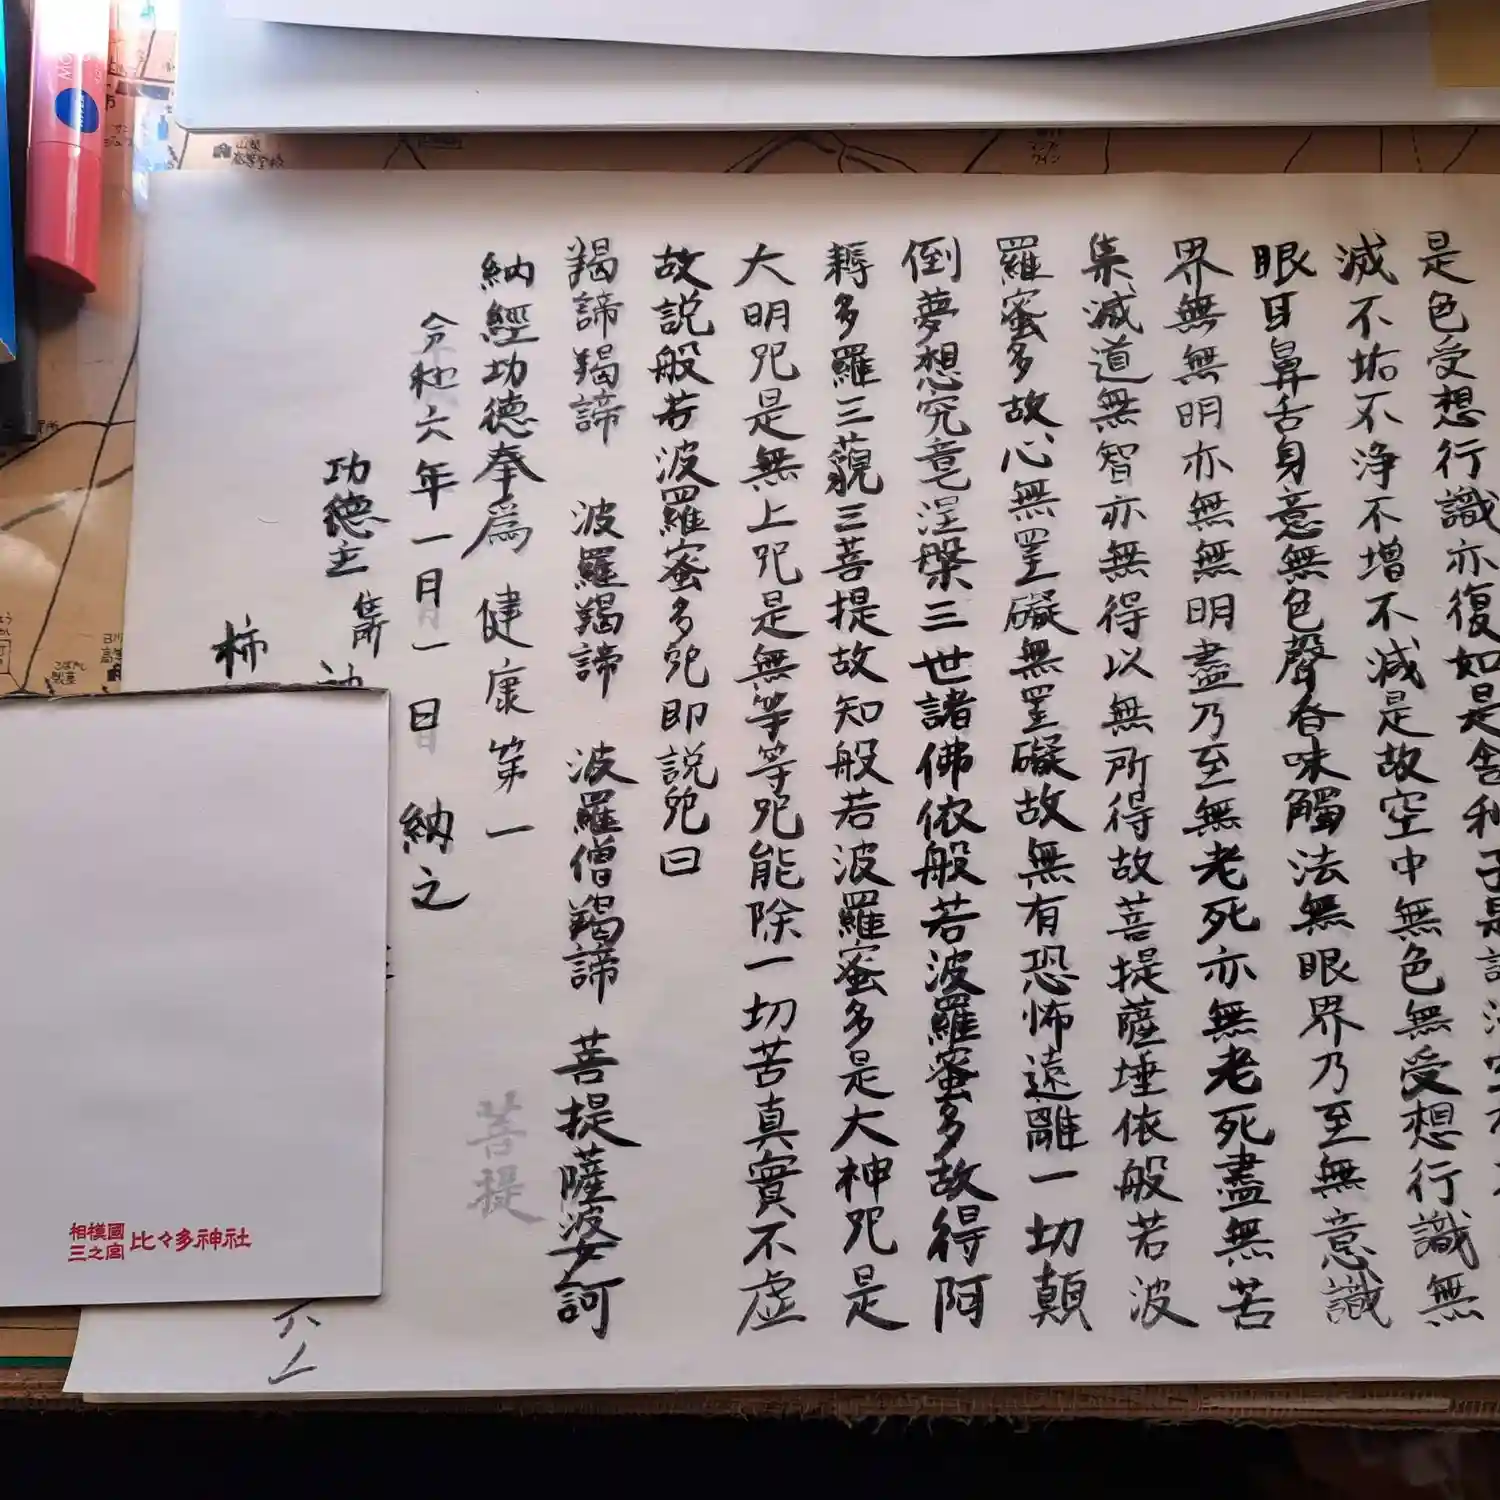 是色受想行識亦復如是舎利子是諸法空
滅不垢不浄不増不減是故空中無色無受想行識無
眼耳鼻舌身意無色聲香味觸法無眼界乃至無意識
界無無明亦無無明盡乃至無老死亦無老死盡無苦
集滅道無智亦無得以無所得故菩提薩埵依般若波
羅蜜多故心無罣礙無罣礙故無有恐怖遠離一切顛
倒夢想究竟涅槃三世諸佛依般若波羅蜜多故得阿
耨多羅三藐三菩提故知般若波羅蜜多是大神咒是
大明咒是無上咒是無等等咒能除一切苦真實不虚
故説般若波羅蜜多咒即説咒曰
羯諦羯諦 波羅羯諦 波羅僧羯諦 菩提薩婆訶
納經功德奉爲 健康第一
菩提
令和六年一月一日 納之
功德主
柿
相模國
三之宮
比々多神社